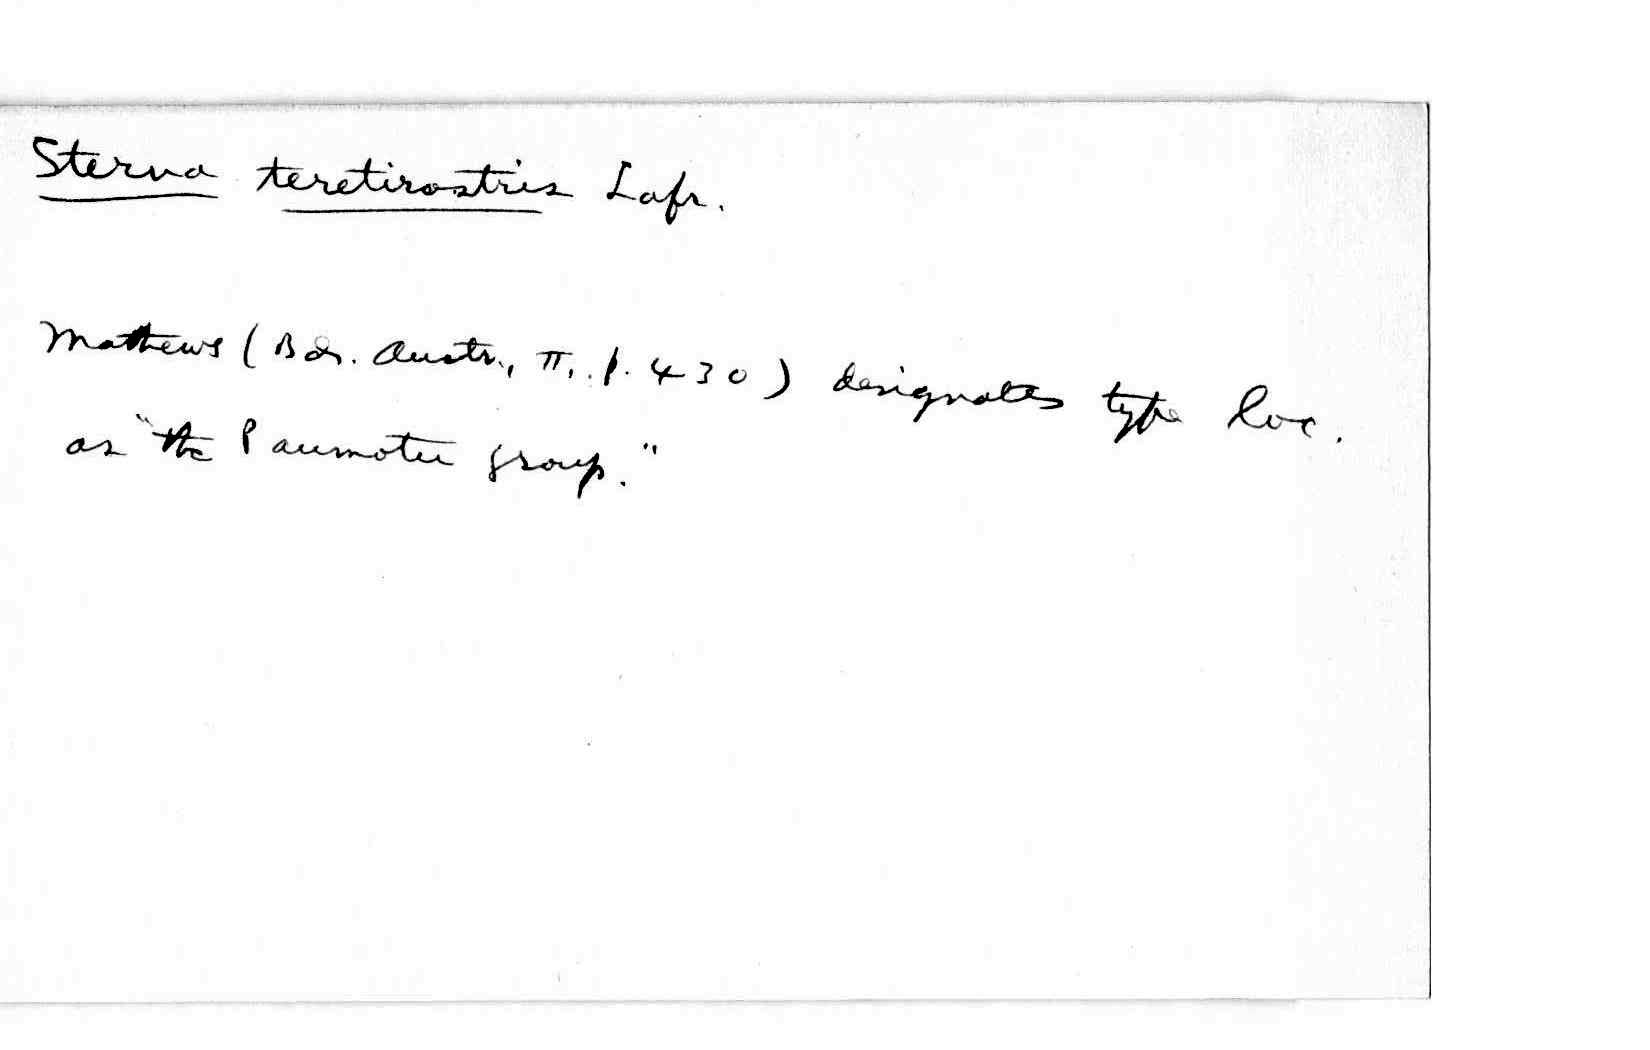 Sterna teretirostris Lafr.
Mathews (Bds. Austr., II, p. 430) designates type loc.
as "the Paumotu group."